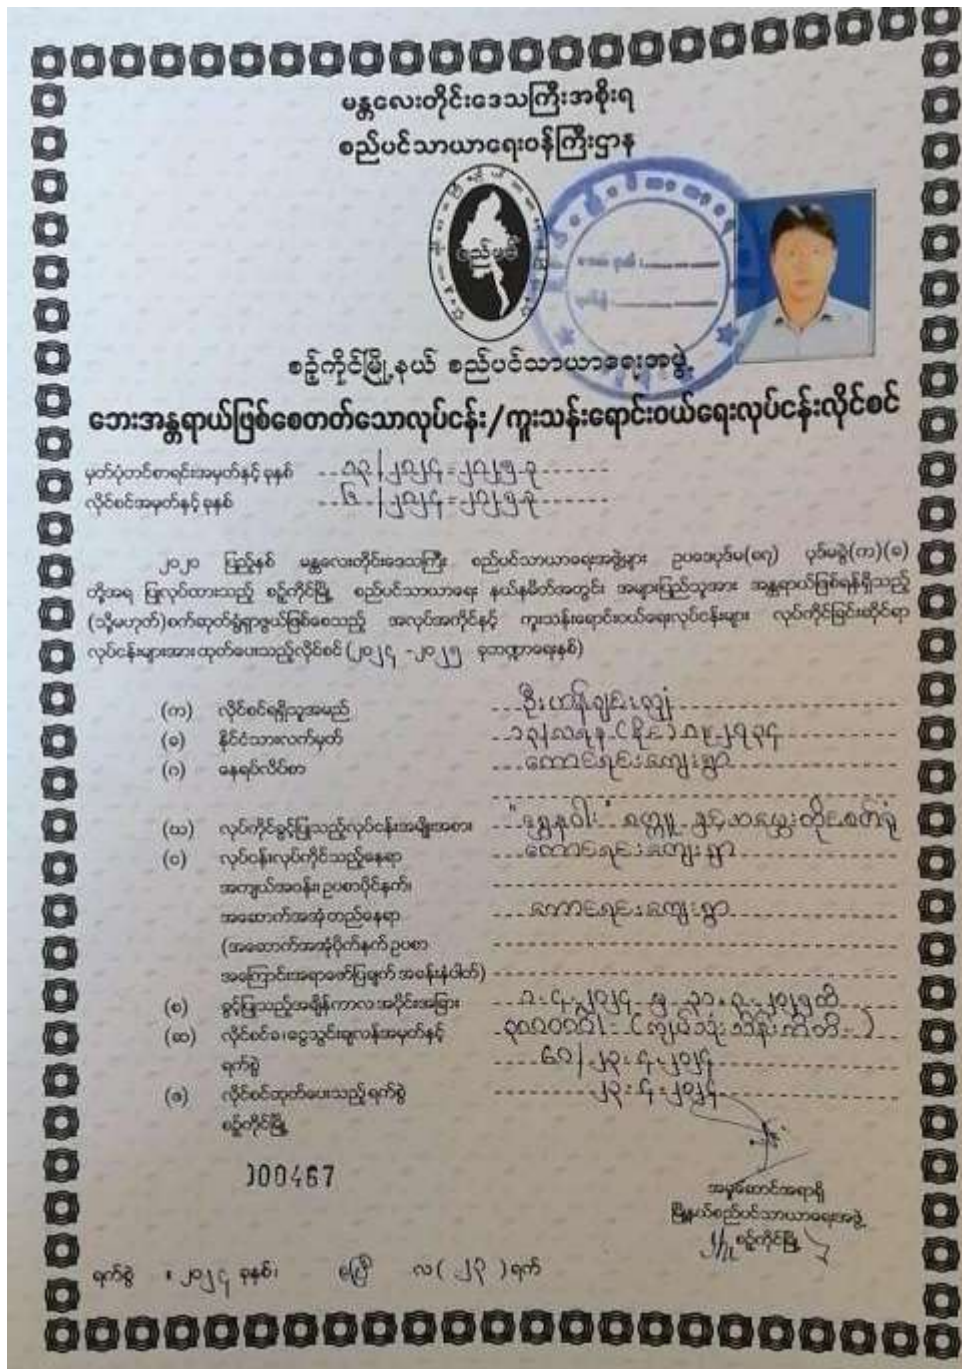 မန္တလေးတိုင်းဒေသကြီးအစိုးရ
စည်ပင်သာယာရေးဝန်ကြီးဌာန
စည်ပင်
စဉ့်ကိုင်မြို့နယ် စည်ပင်သာယာရေးအဖွဲ့
ဘေးအန္တရာယ်ဖြစ်စေတတ်သောလုပ်ငန်း/ကူးသန်းရောင်းဝယ်ရေးလုပ်ငန်းလိုင်စင်
မှတ်ပုံတင်စာရင်းအမှတ်နှင့်ခုနှစ် ၁၃/၂၀၂၄-၂၀၂၅ ခု
လိုင်စင်အမှတ်နှင့်ခုနှစ် ၆/၂၀၂၄-၂၀၂၅ ခု
၂၀၂၀ ပြည့်နှစ် မန္တလေးတိုင်းဒေသကြီး စည်ပင်သာယာရေးအဖွဲ့များ ဥပဒေပုဒ်မ(၈၇) ပုဒ်မခွဲ(က)(ခ)
တို့အရ ပြုလုပ်ထားသည့် စဉ့်ကိုင်မြို့ စည်ပင်သာယာရေး နယ်နမိတ်အတွင်း အများပြည်သူအား အန္တရာယ်ဖြစ်ရန်ရှိသည့်
(သို့မဟုတ်)စက်ဆုတ်ရွံရှာဖွယ်ဖြစ်စေသည့် အလုပ်အကိုင်နှင့် ကူးသန်းရောင်းဝယ်ရေးလုပ်ငန်းများ လုပ်ကိုင်ခြင်းဆိုင်ရာ
လုပ်ငန်းများအားထုတ်ပေးသည့်လိုင်စင်(၂၀၂၄ -၂၀၂၅ ခုဘဏ္ဍာရေးနှစ်)
(က) လိုင်စင်ရရှိသူအမည် ဦး
(ခ) နိုင်ငံသားလက်မှတ် ၁၃/လရန(နိုင်)
(ဂ) နေရပ်လိပ်စာ ကောင်းရင်းကျေးရွာ
(ဃ) လုပ်ကိုင်ခွင့်ပြုသည့်လုပ်ငန်းအမျိုးအစား "ရွှေနဝါး" စက္ကူ
(င) လုပ်ငန်းလုပ်ကိုင်သည့်နေရာ ကောင်းရင်းကျေးရွာ
အကျယ်အဝန်း၊ ဥပစာပိုင်နက်၊
အဆောက်အအုံတည်နေရာ ကောင်းရင်းကျေးရွာ
(အဆောက်အအုံပိုက်နက်ဥပစာ
အကြောင်းအရာဖော်ပြချက်အခန်းနံပါတ်)
(စ) ခွင့်ပြုသည့်အချိန်ကာလအပိုင်းအခြား ၁-၄-၂၀၂၄ မှ ၃၁-၃-၂၀၂၅ထိ
(ဆ) လိုင်စင်ခ၊ငွေသွင်းချလန်အမှတ်နှင့် ၃၀၀၀၀၀ါ- (ကျပ်သုံးသိန်းတိတိ)
ရက်စွဲ ၆၀/၂၃-၄-၂၀၂၄
(ဇ) လိုင်စင်ထုတ်ပေးသည့်ရက်စွဲ ၂၃-၄-၂၀၂၄
စဉ့်ကိုင်မြို့
000467
အမှုဆောင်အရာရှိ
မြို့နယ်စည်ပင်သာယာရေးအဖွဲ့
စဉ့်ကိုင်မြို့
ရက်စွဲ ၊ ၂၀၂၄ ခုနှစ်၊ ဧပြီ လ(၂၃)ရက်